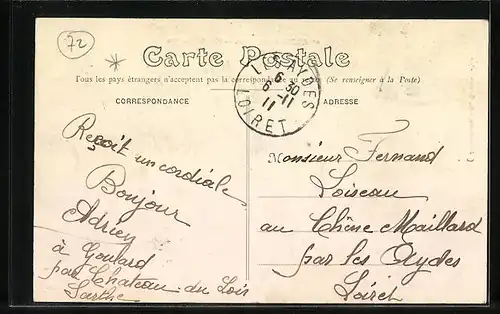 72
*
Carte Postale
Tous les pays étrangers n'acceptent pas la correspondance au (Se renseigner à la Poste)
CORRESPONDANCE
ADRESSE
LES AYDES
6 30
6 -11
11
LOIRET
Reçoit un cordiale
Bonjour
Adrien
à Goulard
par Chateau-du Loir
Sarthe
Monsieur Fernand
Loiseau
au Chêne Maillard
par les Aydes
Loiret